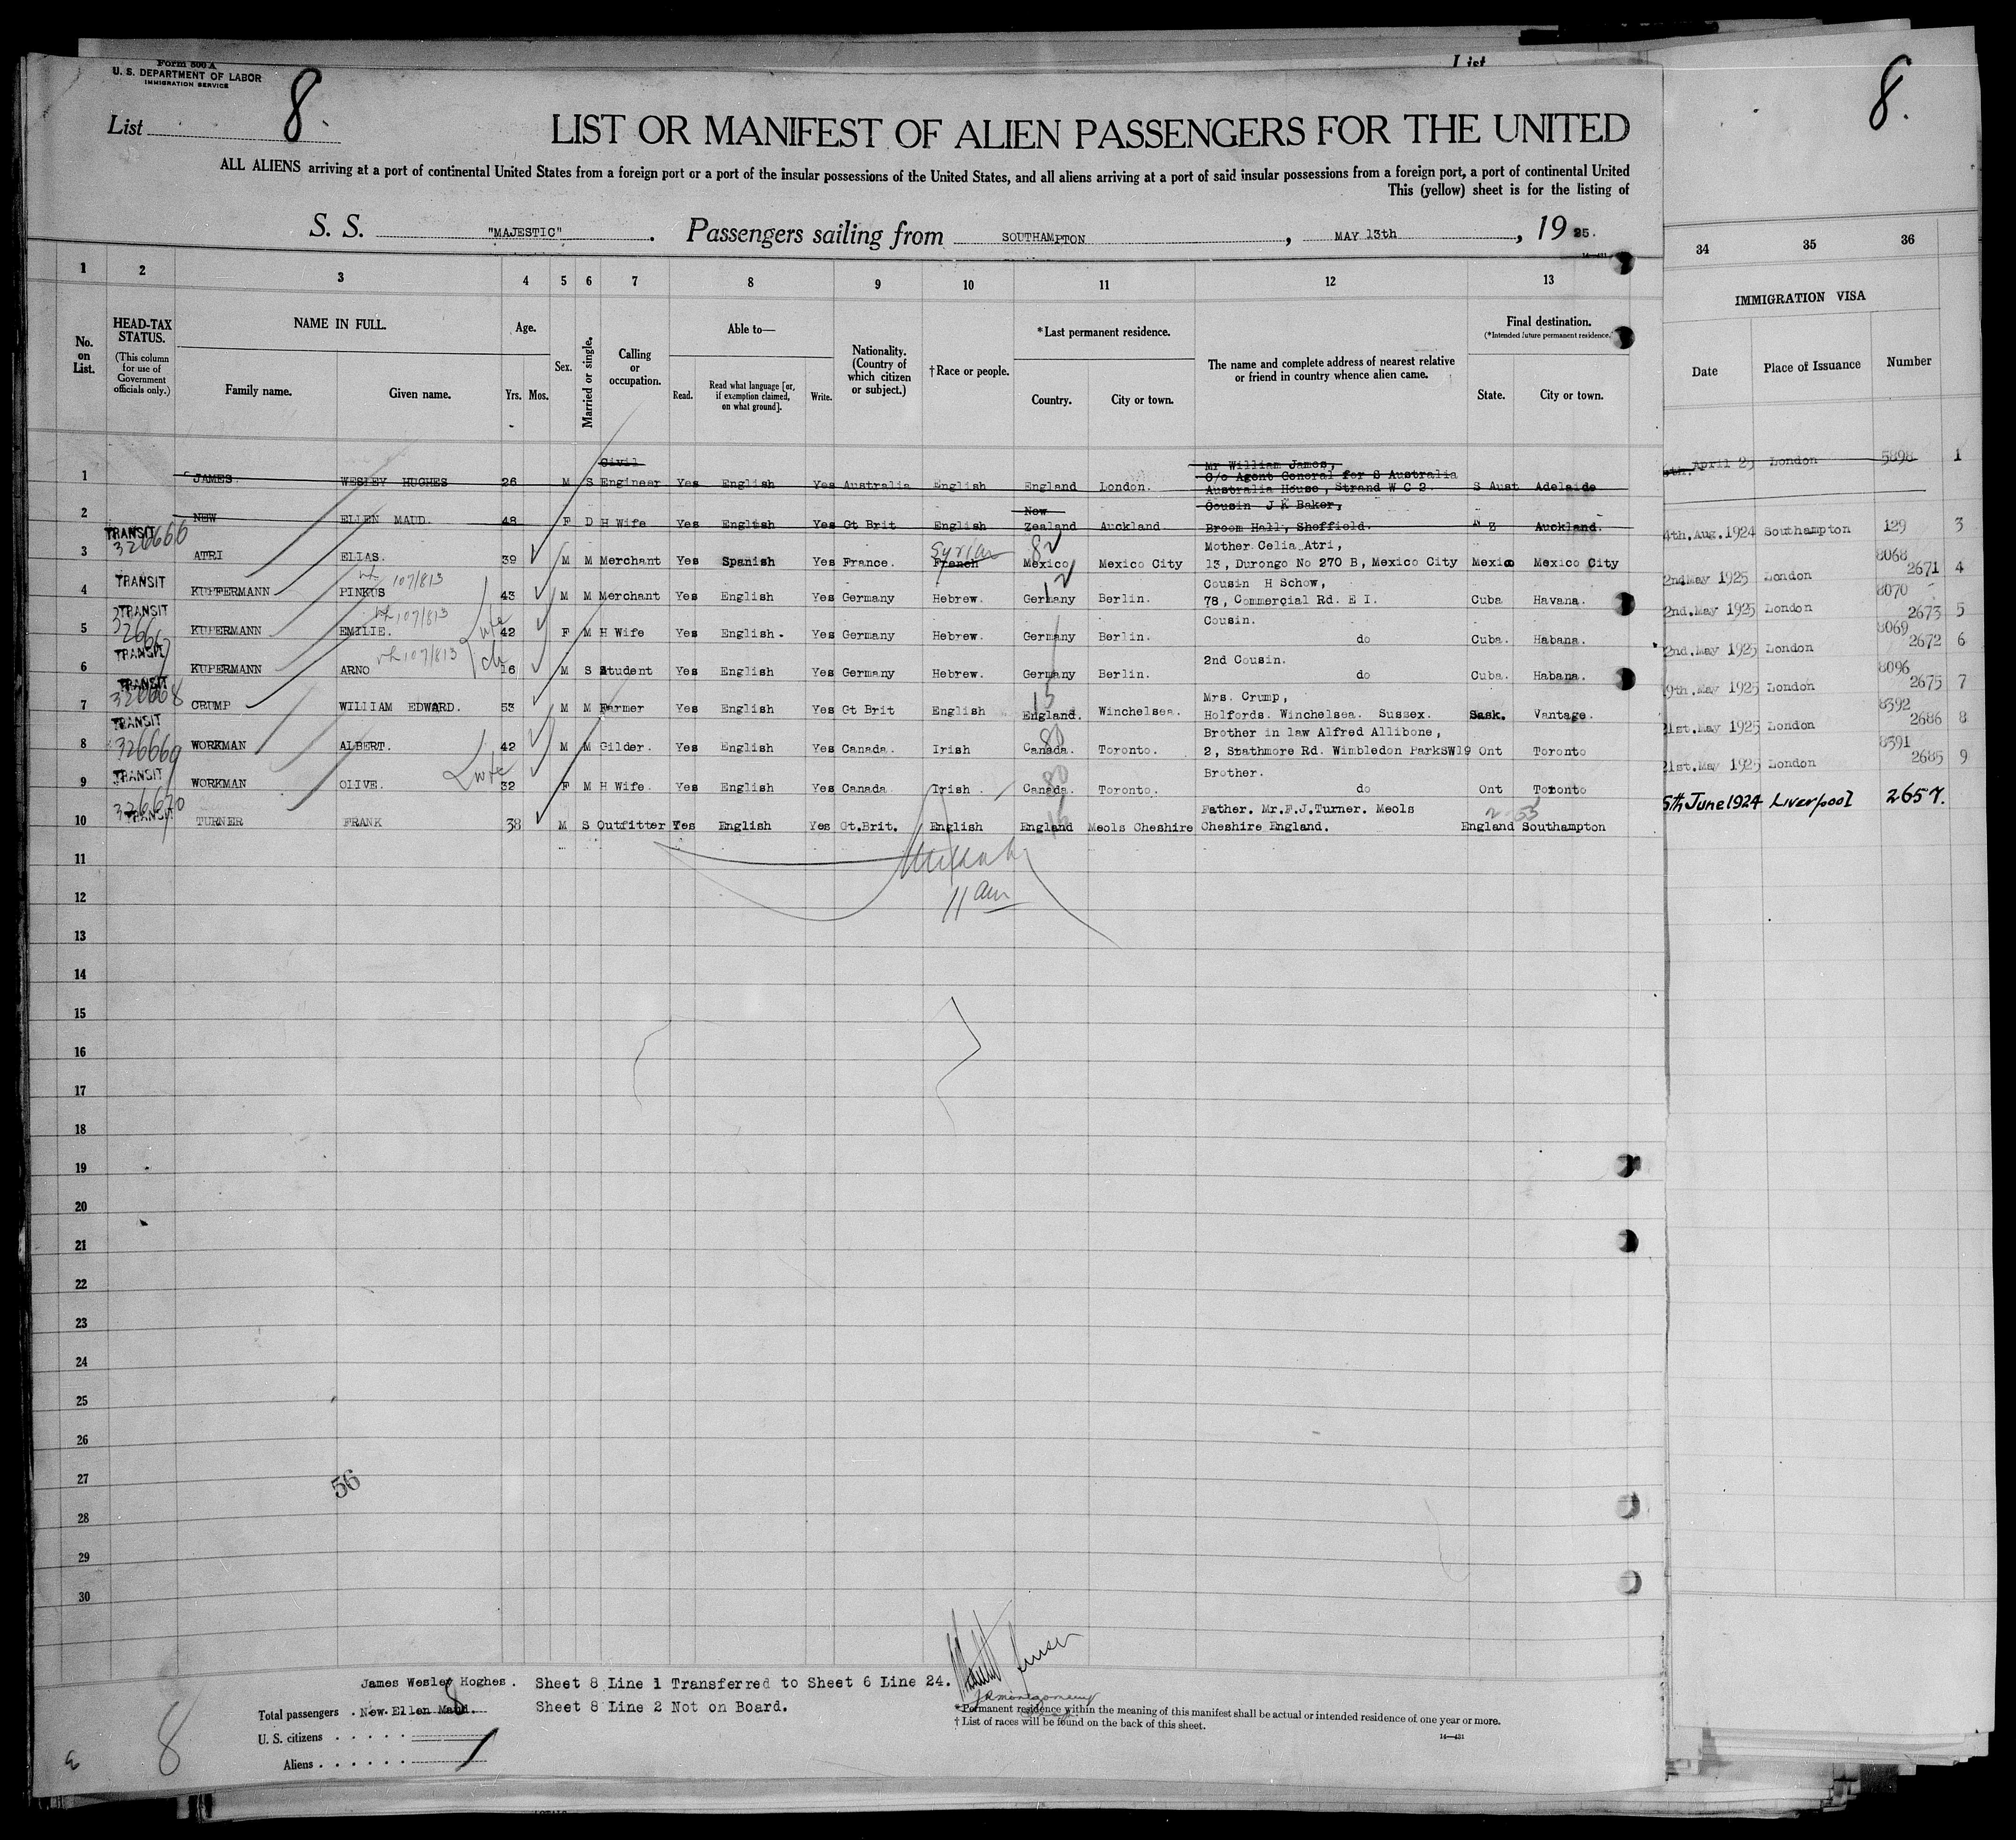 Form 500 A
U. S. DEPARTMENT OF LABOR
IMMIGRATION SERVICE
List
List 8.
8.
LIST OR MANIFEST OF ALIEN PASSENGERS FOR THE UNITED
ALL ALIENS arriving at a port of continental United States from a foreign port or a port of the insular possessions of the United States, and all aliens arriving at a port of said insular possessions from a foreign port, a port of continental United
This (yellow) sheet is for the listing of
S. S. "MAJESTIC". Passengers sailing from SOUTHAMPTON, MAY 13th, 19 25.
1 2 3 4 5 6 7 8 9 10 11 12 13 34 35 36
No. on List.
HEAD-TAX STATUS.
(This column for use of Government officials only.)
NAME IN FULL.
Family name. Given name.
Age.
Yrs. Mos.
Sex.
Married or single.
Calling or occupation.
Able to—
Read. Read what language [or, if exemption claimed, on what ground]. Write.
Nationality. (Country of which citizen or subject.)
†Race or people.
*Last permanent residence.
Country. City or town.
The name and complete address of nearest relative or friend in country whence alien came.
Final destination.
(*Intended future permanent residence.)
State. City or town.
IMMIGRATION VISA
Date Place of Issuance Number
Civil Mr William James,
C/o Agent General for S Australia
1 JAMES. WESLEY HUGHES 26 M S Engineer Yes English Yes Australia English England London. Australia House, Strand W C 2. S Aust Adelaide April 25 London 5898 1
New Cousin J K Baker,
2 NEW ELLEN MAUD. 48 F D H Wife Yes English Yes Gt Brit English Zealand Auckland Broom Hall, Sheffield. N Z Auckland.
TRANSIT 326666 Syrian 82 Mother Celia Atri, 4th.Aug.1924 Southampton 129 3
3 ATRI ELIAS. 39 M M Merchant Yes Spanish Yes France. French Mexico Mexico City 13, Durongo No 270 B, Mexico City Mexico Mexico City
TRANSIT 107/813 Cousin H Schow, 2nd May 1925 London 8068 2671 4
4 KUPFERMANN PINKUS 43 M M Merchant Yes English Yes Germany Hebrew. Germany Berlin. 78, Commercial Rd. E I. Cuba Havana.
TRANSIT 32666 107/813 wife Cousin. 2nd.May 1925 London 8070 2673 5
5 KUPERMANN EMILIE. 42 F M H Wife Yes English. Yes Germany Hebrew. Germany Berlin. do Cuba. Habana.
TRANSIT 107/813 ch 2nd Cousin. 2nd.May 1925 London 8069 2672 6
6 KUPERMANN ARNO 16 M S Student Yes English Yes Germany Hebrew. Germany Berlin. do Cuba. Habana.
TRANSIT 326668 15 Mrs. Crump, 9th.May 1925 London 8096 2675 7
7 CRUMP WILLIAM EDWARD. 53 M M Farmer Yes English Yes Gt Brit English England. Winchelsea. Holfords. Winchelsea. Sussex. Sask. Vantage.
TRANSIT 326669 80 Brother in law Alfred Allibone, 21st.May 1925 London 8392 2686 8
8 WORKMAN ALBERT. 42 M M Gilder. Yes English Yes Canada. Irish Canada. Toronto. 2, Strathmore Rd. Wimbledon ParkSW19 Ont Toronto
TRANSIT wife 80 Brother. 21st.May 1925 London 8391 2685 9
9 WORKMAN OLIVE. 32 F M H Wife. Yes English Yes Canada Irish. Canada. Toronto. do Ont Toronto
TRANSIT 326670 16 Father. Mr.F.J.Turner. Meols 5th June 1924 Liverpool 2657.
10 TURNER FRANK 38 M S Outfitter Yes English Yes Gt.Brit. English England Meols Cheshire Cheshire England. England Southampton
11
11 am
12
13
14
15
16
17
18
19
20
21
22
23
24
25
26
27
56
28
29
30
James Wesley Hoghes. Sheet 8 Line 1 Transferred to Sheet 6 Line 24.
Total passengers . New Ellen Maud. Sheet 8 Line 2 Not on Board.
U. S. citizens
Aliens
8
8
*Permanent residence within the meaning of this manifest shall be actual or intended residence of one year or more.
†List of races will be found on the back of this sheet.
14—431